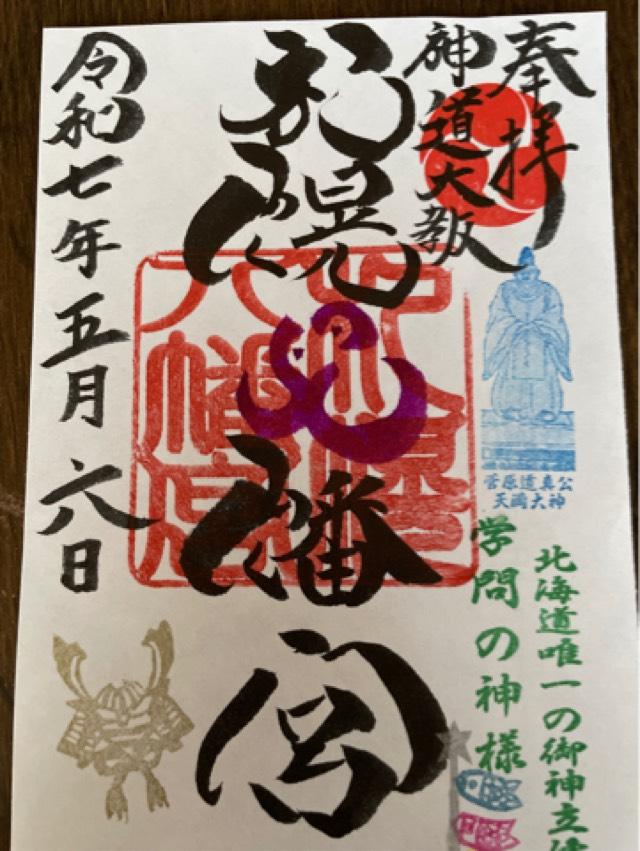 奉拝
神道大教
札幌八幡宮
令和七年五月六日
菅原道真公
天満大神
北海道唯一の御神立
学問の神様